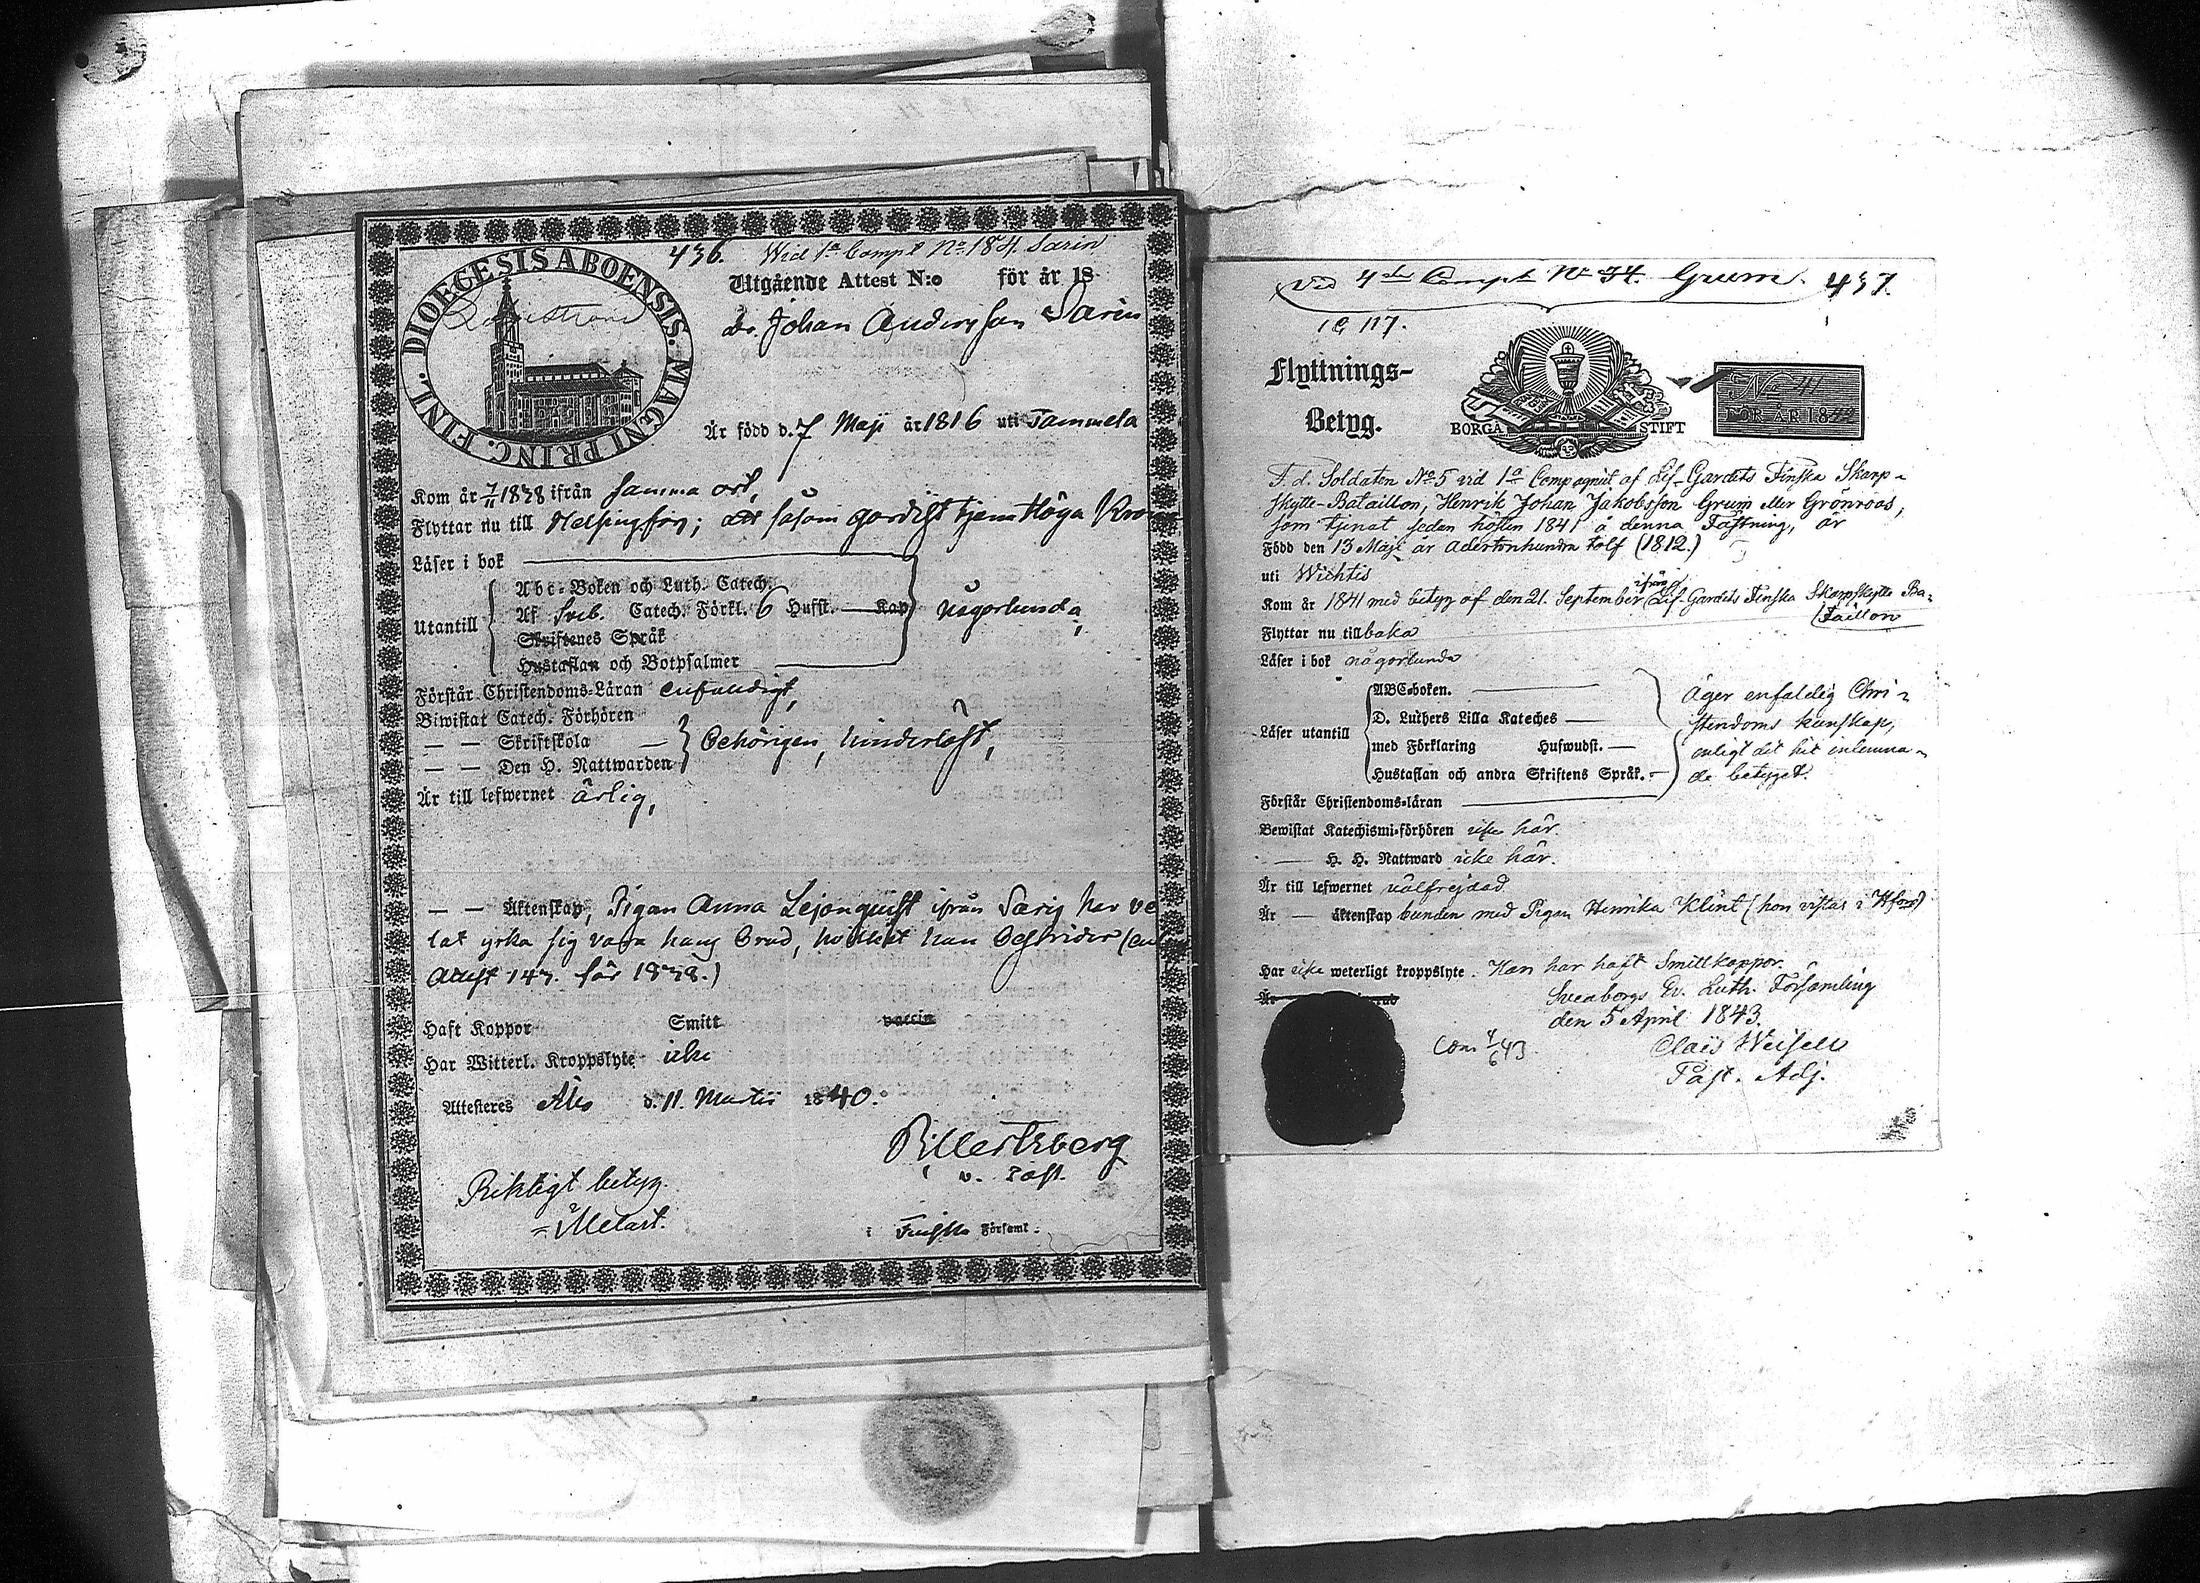 436. Wid 1a Compt No 184. Sarin
DIOECESIS ABOENSIS. MAGNI PRINC. FINL.
Utgående Attest N:o för år 18
Dr. Johan Andersson Sarin
Är född d. 7 Maji år 1816 uti Tammela
Kom år 1838 ifrån samma ort,
Flyttar nu till Helsingfors; såsom gardist tjena Höga Kro
Läser i bok
Utantill
Abc-Boken och Luth. Catech.
Af Sveb. Catech. Förkl. 6 Hufst. — Kap
Skriftenes Språk
Hustaflan och Botpsalmer
någorlunda,
Förstår Christendoms-Läran enfaldigt,
Biwistat Catech. Förhören
— — Skriftskola
— — Den H. Nattwarden
behörigen, hinderlöst,
Är till lefwernet ärlig,
— — Äktenskap, Pigan Anna Lejonquist ifrån har ve
lat yrka sig vara hans Brud, hvilket han bestrider
147. för 1838.)
Haft Koppor Smitt vaccin
Har Witterl. Kroppslyte icke
Attesteres Åbo d. 11. Martii 1840.
v. Past.
Riktigt betyg.
i Finska Församl.
Vid 4de Compt No 34. Grum. 437.
117.
Flyttnings-
Betyg.
BORGÅ STIFT
No 41
FÖR ÅR 1843
F. d. Soldaten No 5 vid 1a Compagniet af Lif-Gardets Finska Skarp-
skytte-Bataillon, Henrik Johan Jakobsson Grum eller Grönroos,
som tjenat sedan hösten 1841 å denna Fästning, är
Född den 13 Maji år adertonhundra tolf (1812.)
uti Wichtis
Kom år 1841 med betyg af den 21. September ifrån Lif-Gardets Finska Skarpskytte Ba-
taillon
Flyttar nu tillbaka
Läser i bok någorlunda
Läser utantill
ABC-boken.
D. Luthers Lilla Kateches —
med Förklaring Hufwudst. —
Hustaflan och andra Skriftens Språk. —
Äger enfaldig Chri-
stendoms kunskap,
enligt det hit inlemna-
de betyget.
Förstår Christendoms-läran
Bewistat Katechismi-förhören icke här.
— H. H. Nattward icke här.
Är till lefwernet välfrejdad.
Är — äktenskap bunden med Pigan Henrika Klint (hon vistas i Hfors)
Har icke weterligt kroppslyte. Han har haft Smittkoppor.
Sveaborgs Ev. Luth. Församling
den 5 April 1843.
Past. Adj.